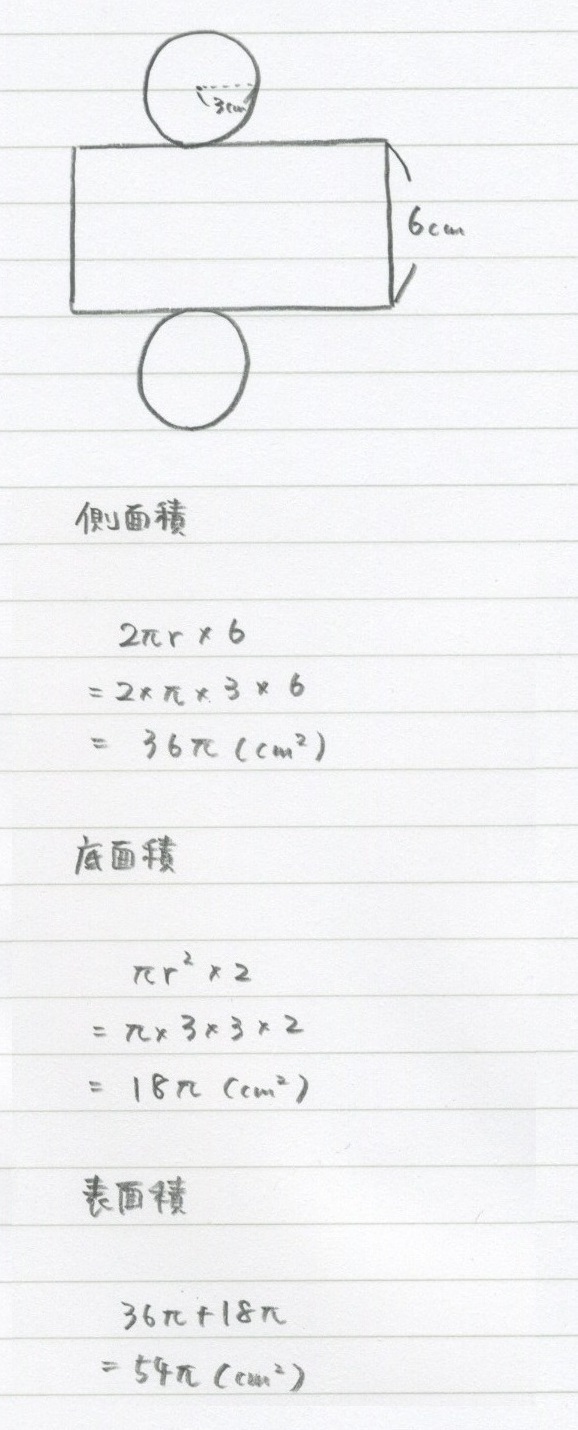 3cm
6cm
側面積
2πr × 6
= 2×π×3×6
= 36π (cm²)
底面積
πr² × 2
= π×3×3×2
= 18π (cm²)
表面積
36π+18π
= 54π (cm²)